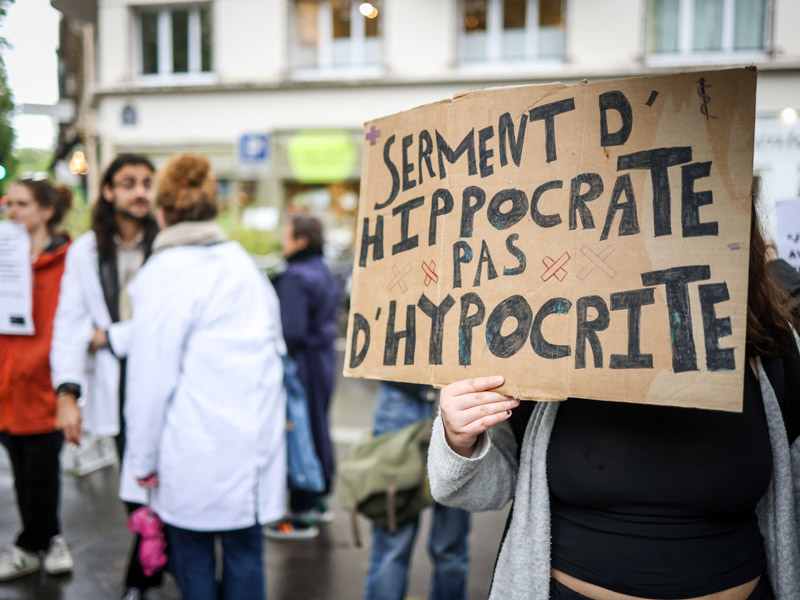 SERMENT D'
HIPPOCRATE
PAS
D'HYPOCRITE
P